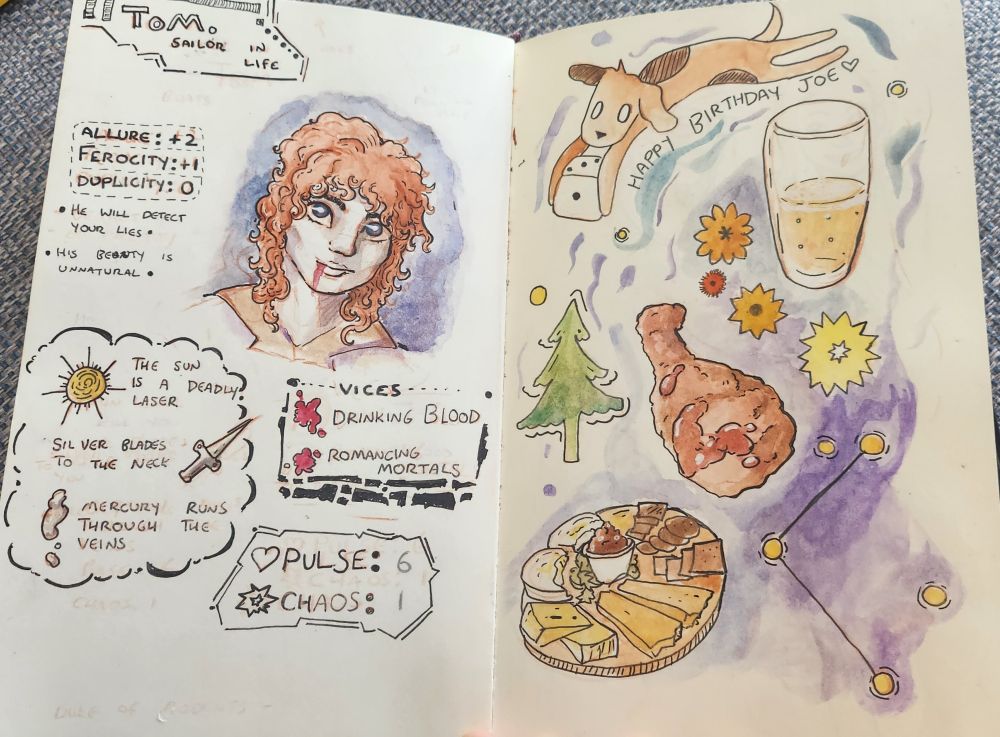 TOM.
SAILOR IN
LIFE
ALLURE: +2
FEROCITY: +1
DUPLICITY: 0
• HE WILL DETECT
YOUR LIES •
• HIS BEAUTY IS
UNNATURAL •
THE SUN
IS A DEADLY
LASER
SILVER BLADES
TO THE NECK
MERCURY RUNS
THROUGH THE
VEINS
VICES
DRINKING BLOOD
ROMANCING
MORTALS
PULSE: 6
CHAOS: 1
HAPPY BIRTHDAY JOE♡